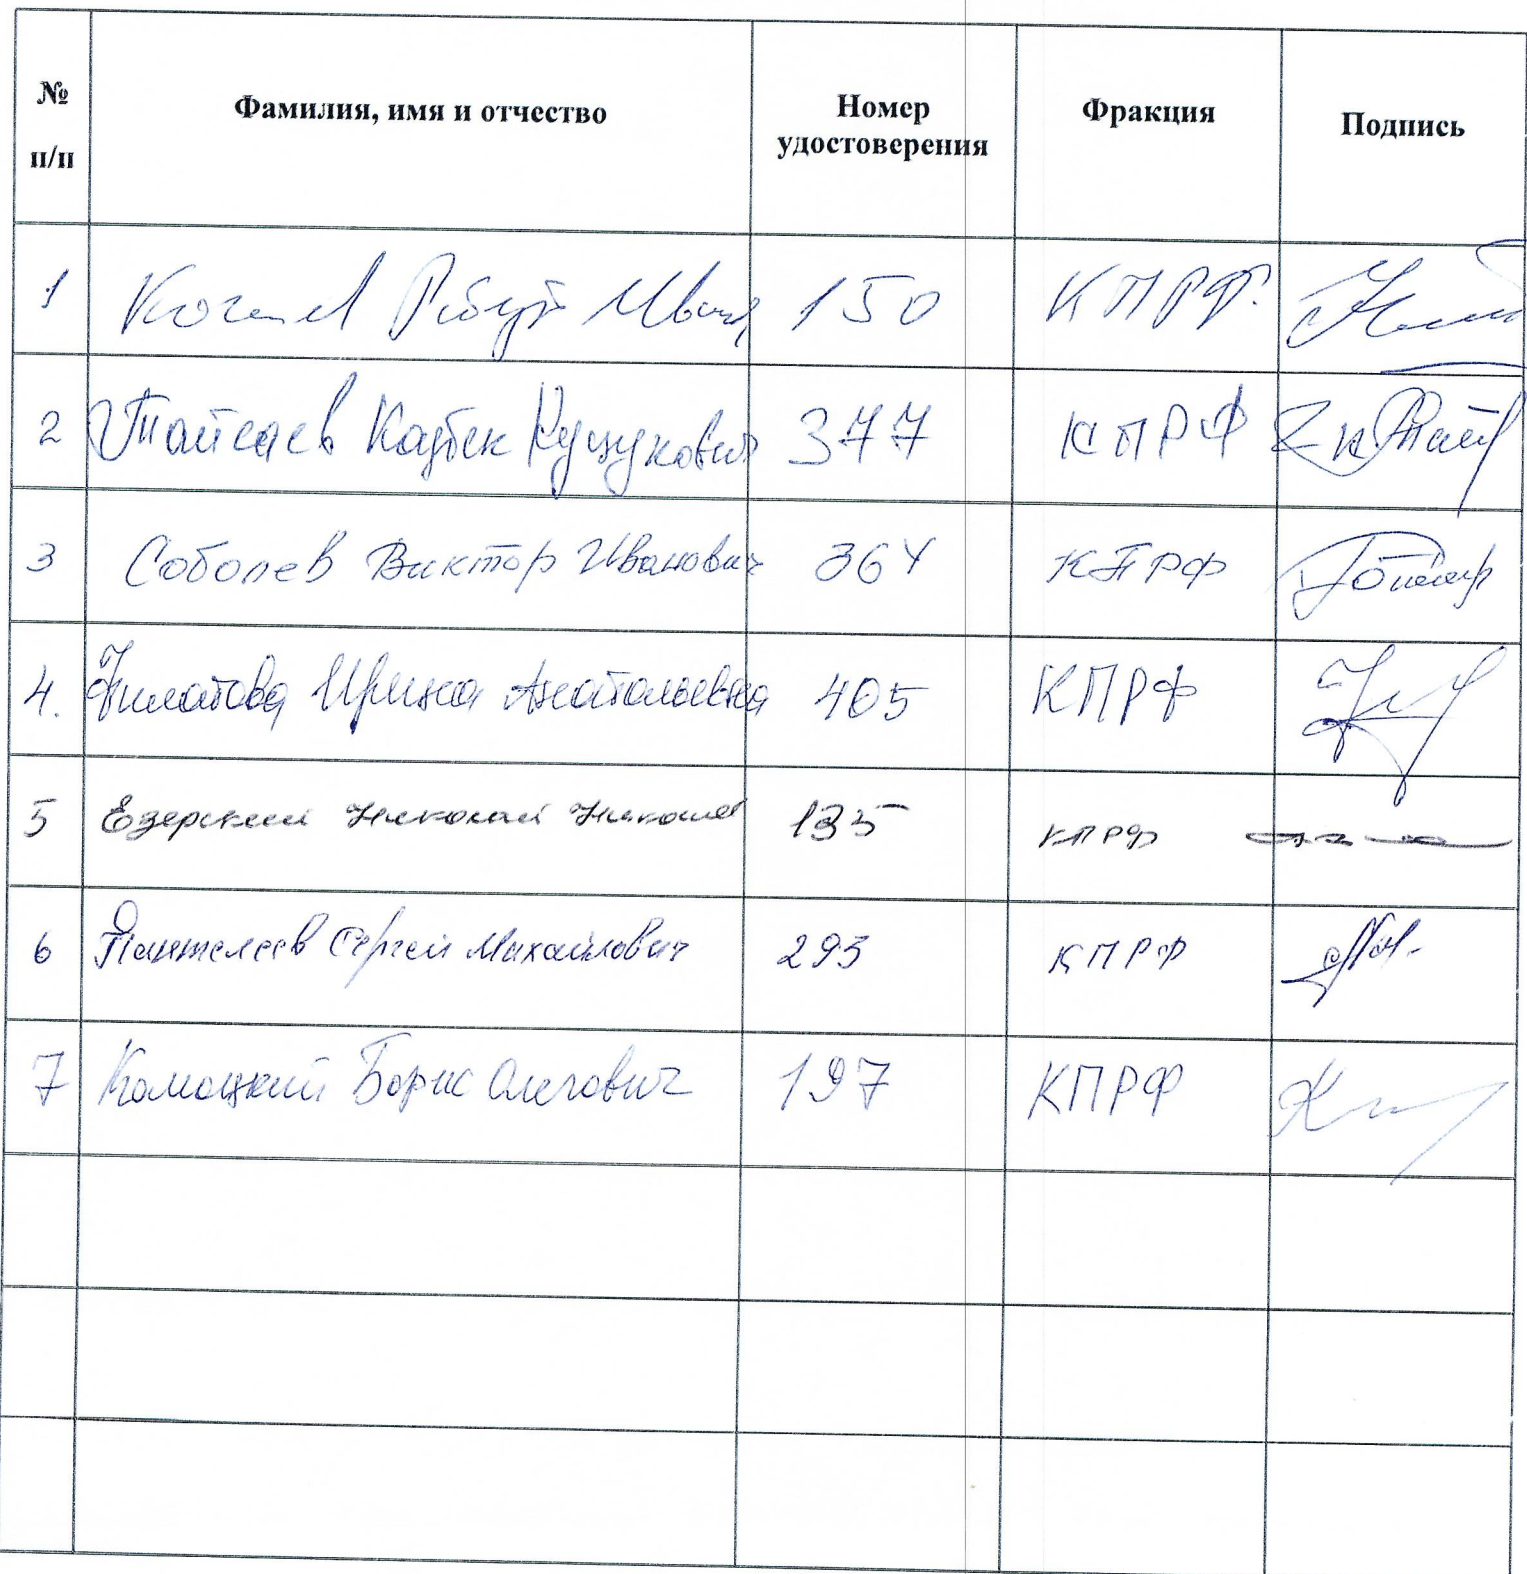 № п/п Фамилия, имя и отчество Номер удостоверения Фракция Подпись
1 Кочиев Роберт Иван 150 КПРФ.
2 Тайсаев Казбек Куцукович 377 КПРФ
3 Соболев Виктор Иванович 364 КПРФ
4. Филатова Ирина Анатольевна 405 КПРФ
5 Езерский Николай Николаев 135 КПРФ
6 Пантелеев Сергей Михайлович 295 КПРФ
7 Комоцкий Борис Олегович 197 КПРФ